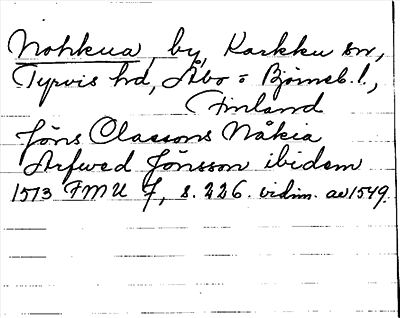 Nohkua, by, Karkku sn,
Tyrvis hd, Åbo = Björneb. l.,
Finland
Jöns Classons Nåkia
Arfwed Jönsson ibidem
1513 FMU 7, s. 226. vidim. av 1549.